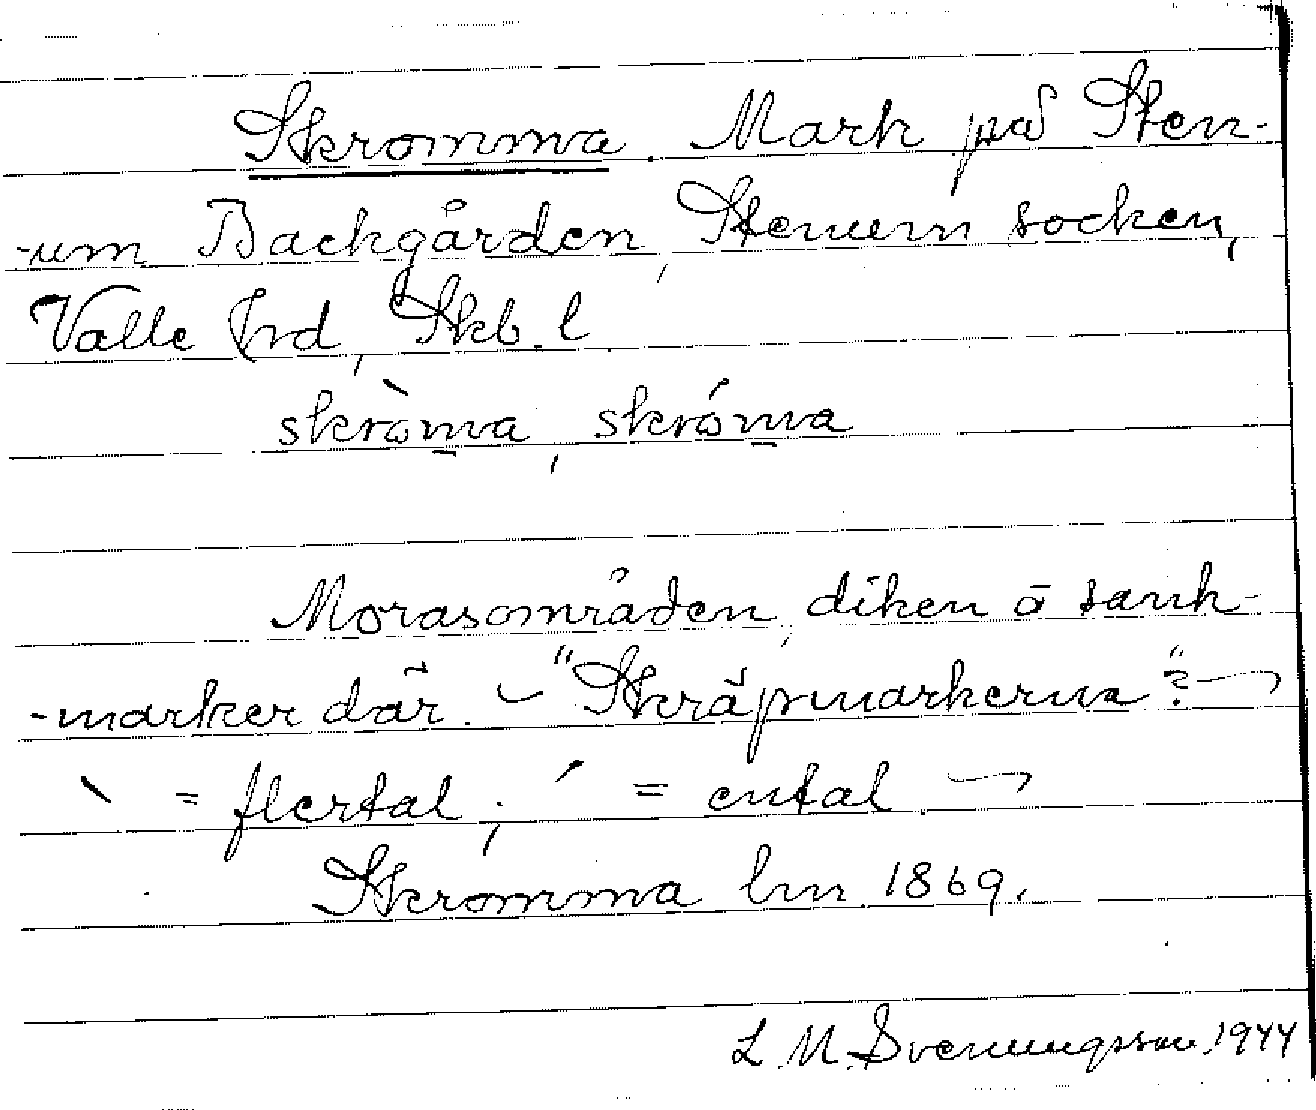 Skromma. Mark på Sten-
-um Backgården, Stenum socken,
Valle hrd, Skb. l
skròma, skróma
Morasområden, diken å sank-
-marker där. – "Skräpmarkerna".
\ = flertal; / = ental
Skromma lm 1869.
L. M. Svenungsson 1944